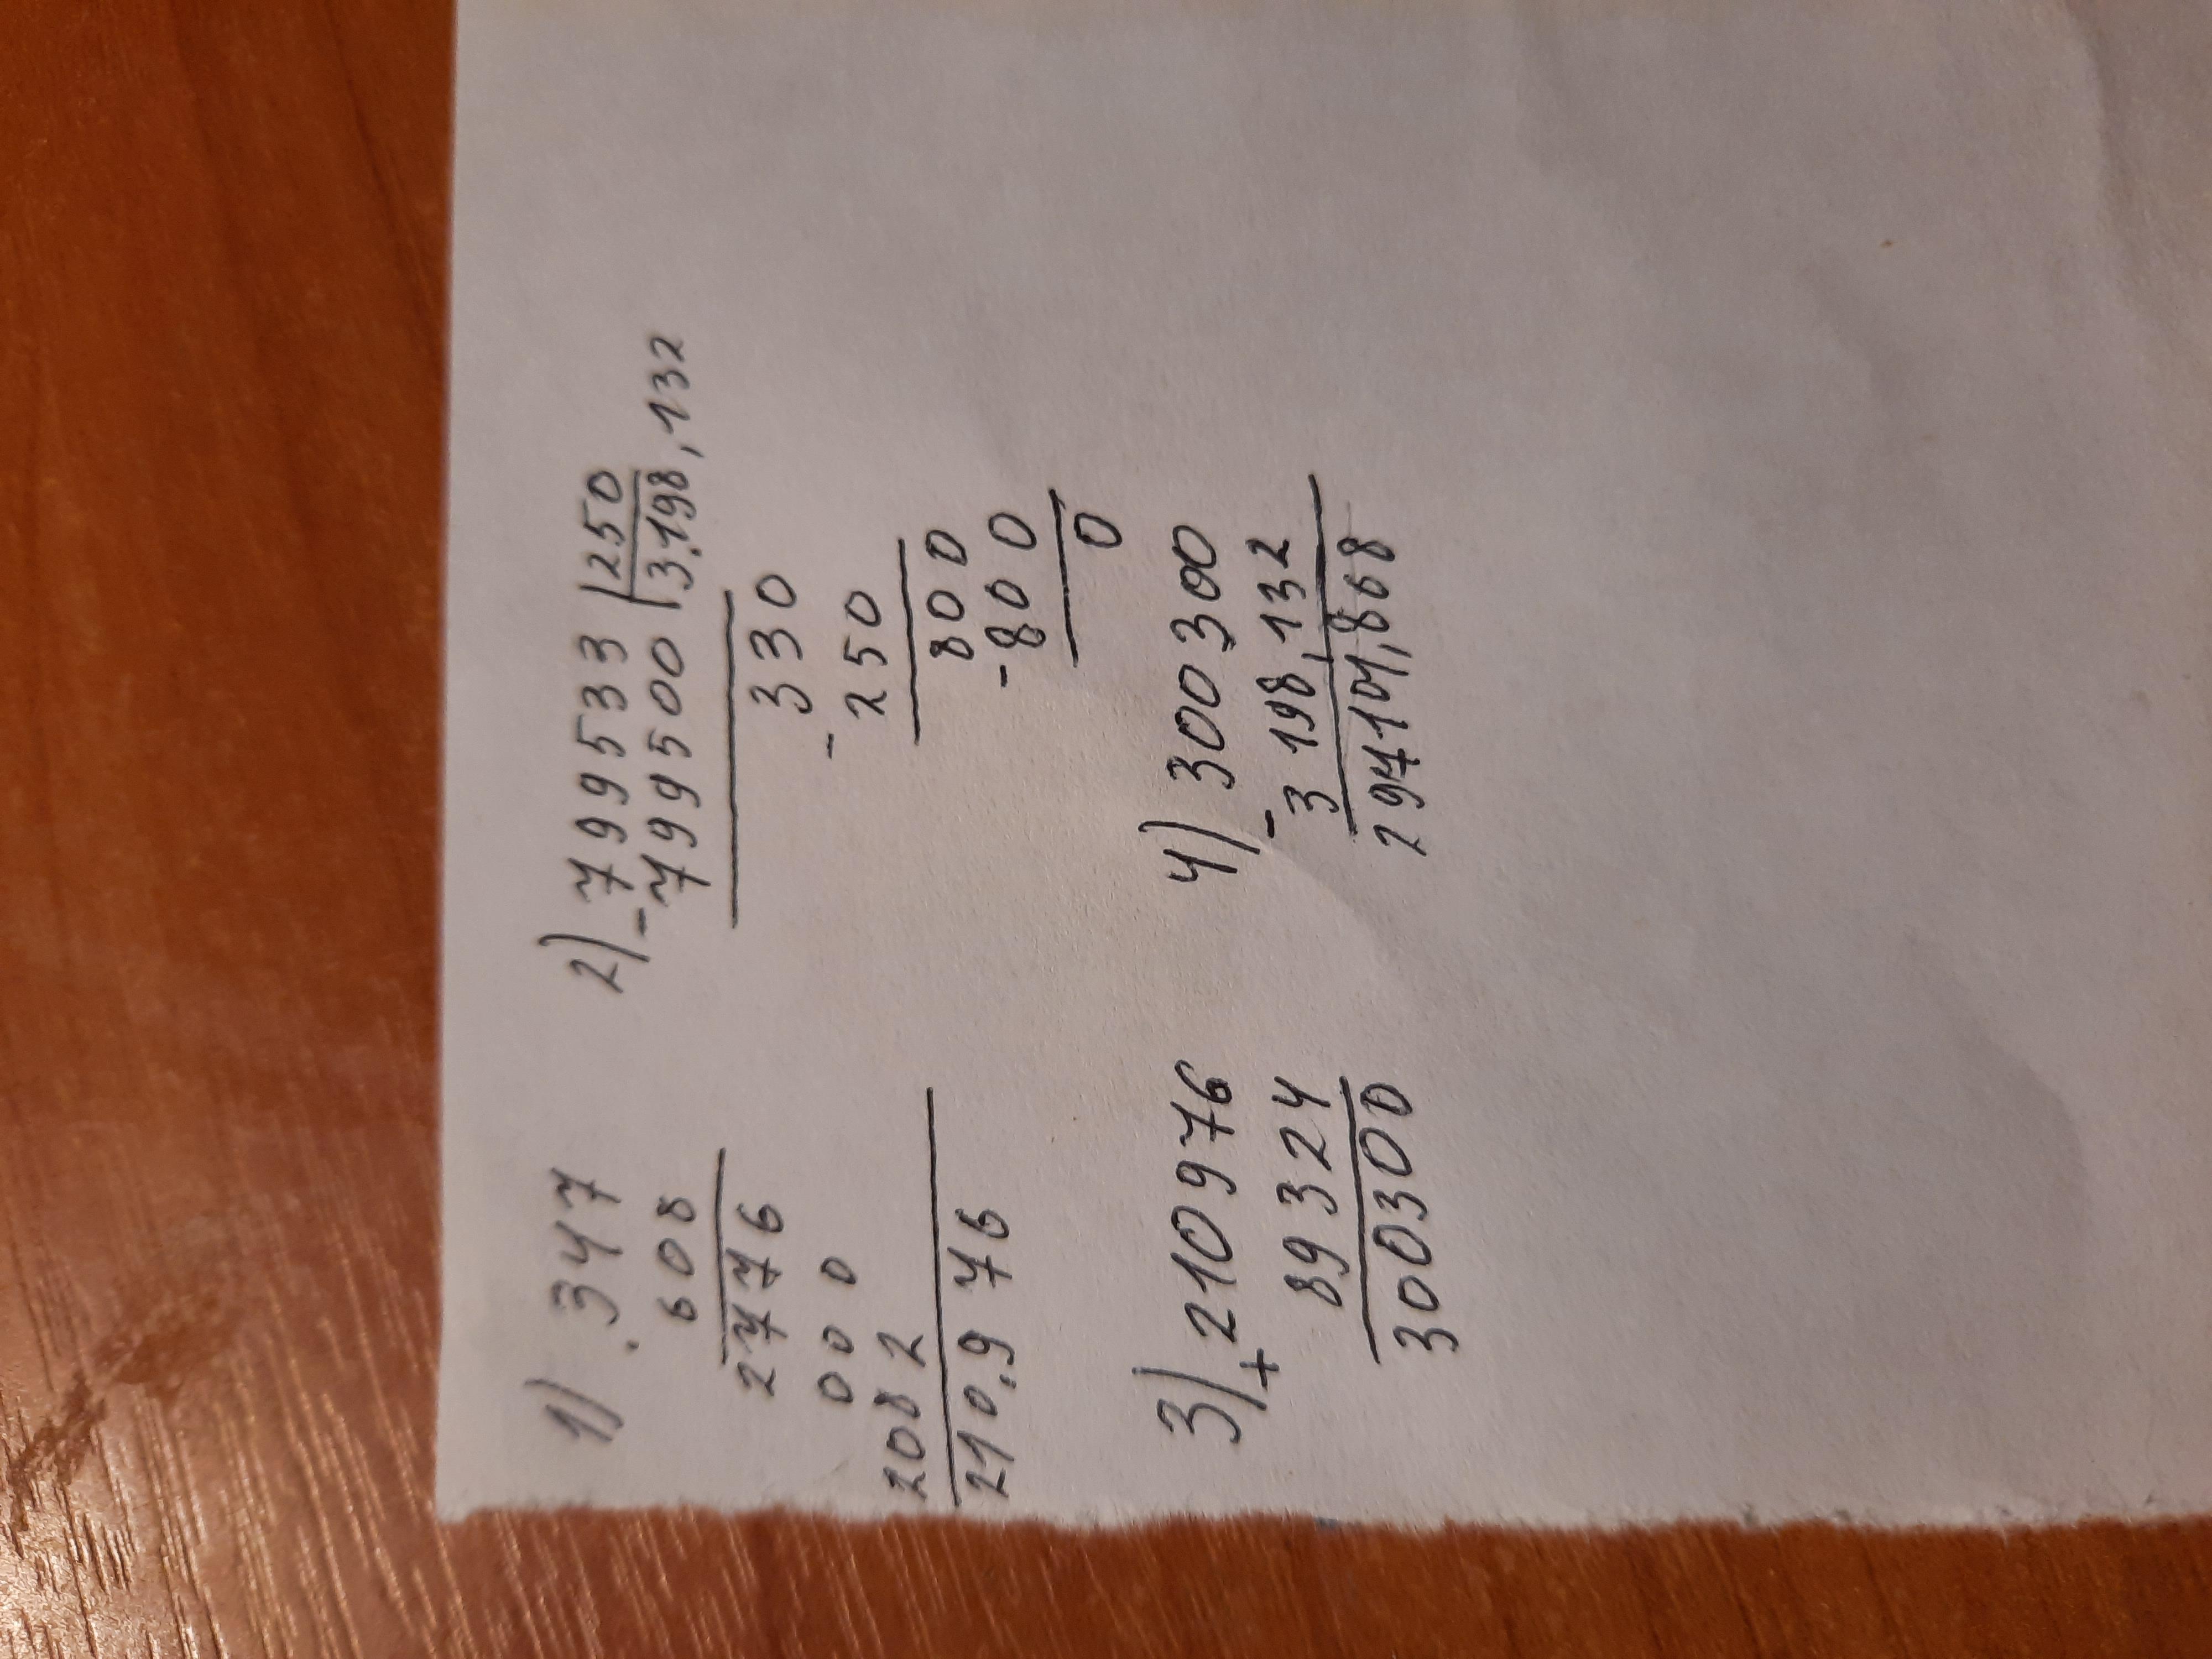 1) . 347
608
2776
000
2082
210.976
2) - 799533 | 250
799500 | 3.198,132
330
- 250
800
- 800
0
3) + 210976
89324
300300
4) - 300300
3 198,132
297101,868